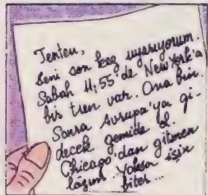 Tenten,
Seni son kez uyarıyorum.
Sabah 11,55'de New York'a
bir tren var. Ona bin.
Sonra Avrupa'ya gi-
decek gemide ol.
Chicago'dan gitmen
lazım. Yoksa işin
biter...